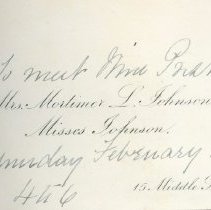 To meet Miss
Mrs. Mortimer L. Johnson
Misses Johnson.
February
4 to 6 15 Middle